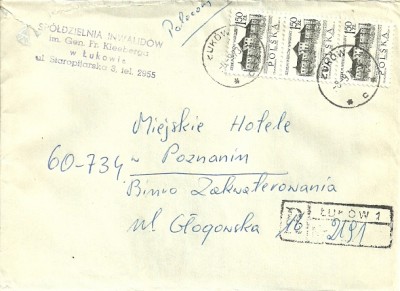 SPÓŁDZIELNIA INWALIDÓW
im. Gen. Fr. Kleeberga
w Łukowie
ul. Staropijarska 3, tel. 2855
Polecony
1,50 ZŁ
POLSKA
1,50 ZŁ
POLSKA
1,50 ZŁ
POLSKA
ŁUKÓW
* c
ŁUKÓW
* c
Miejskie Hotele
60-734 w Poznaniu
Biuro Zakwaterowania
ul Głogowska 16
R ŁUKÓW 1
2191